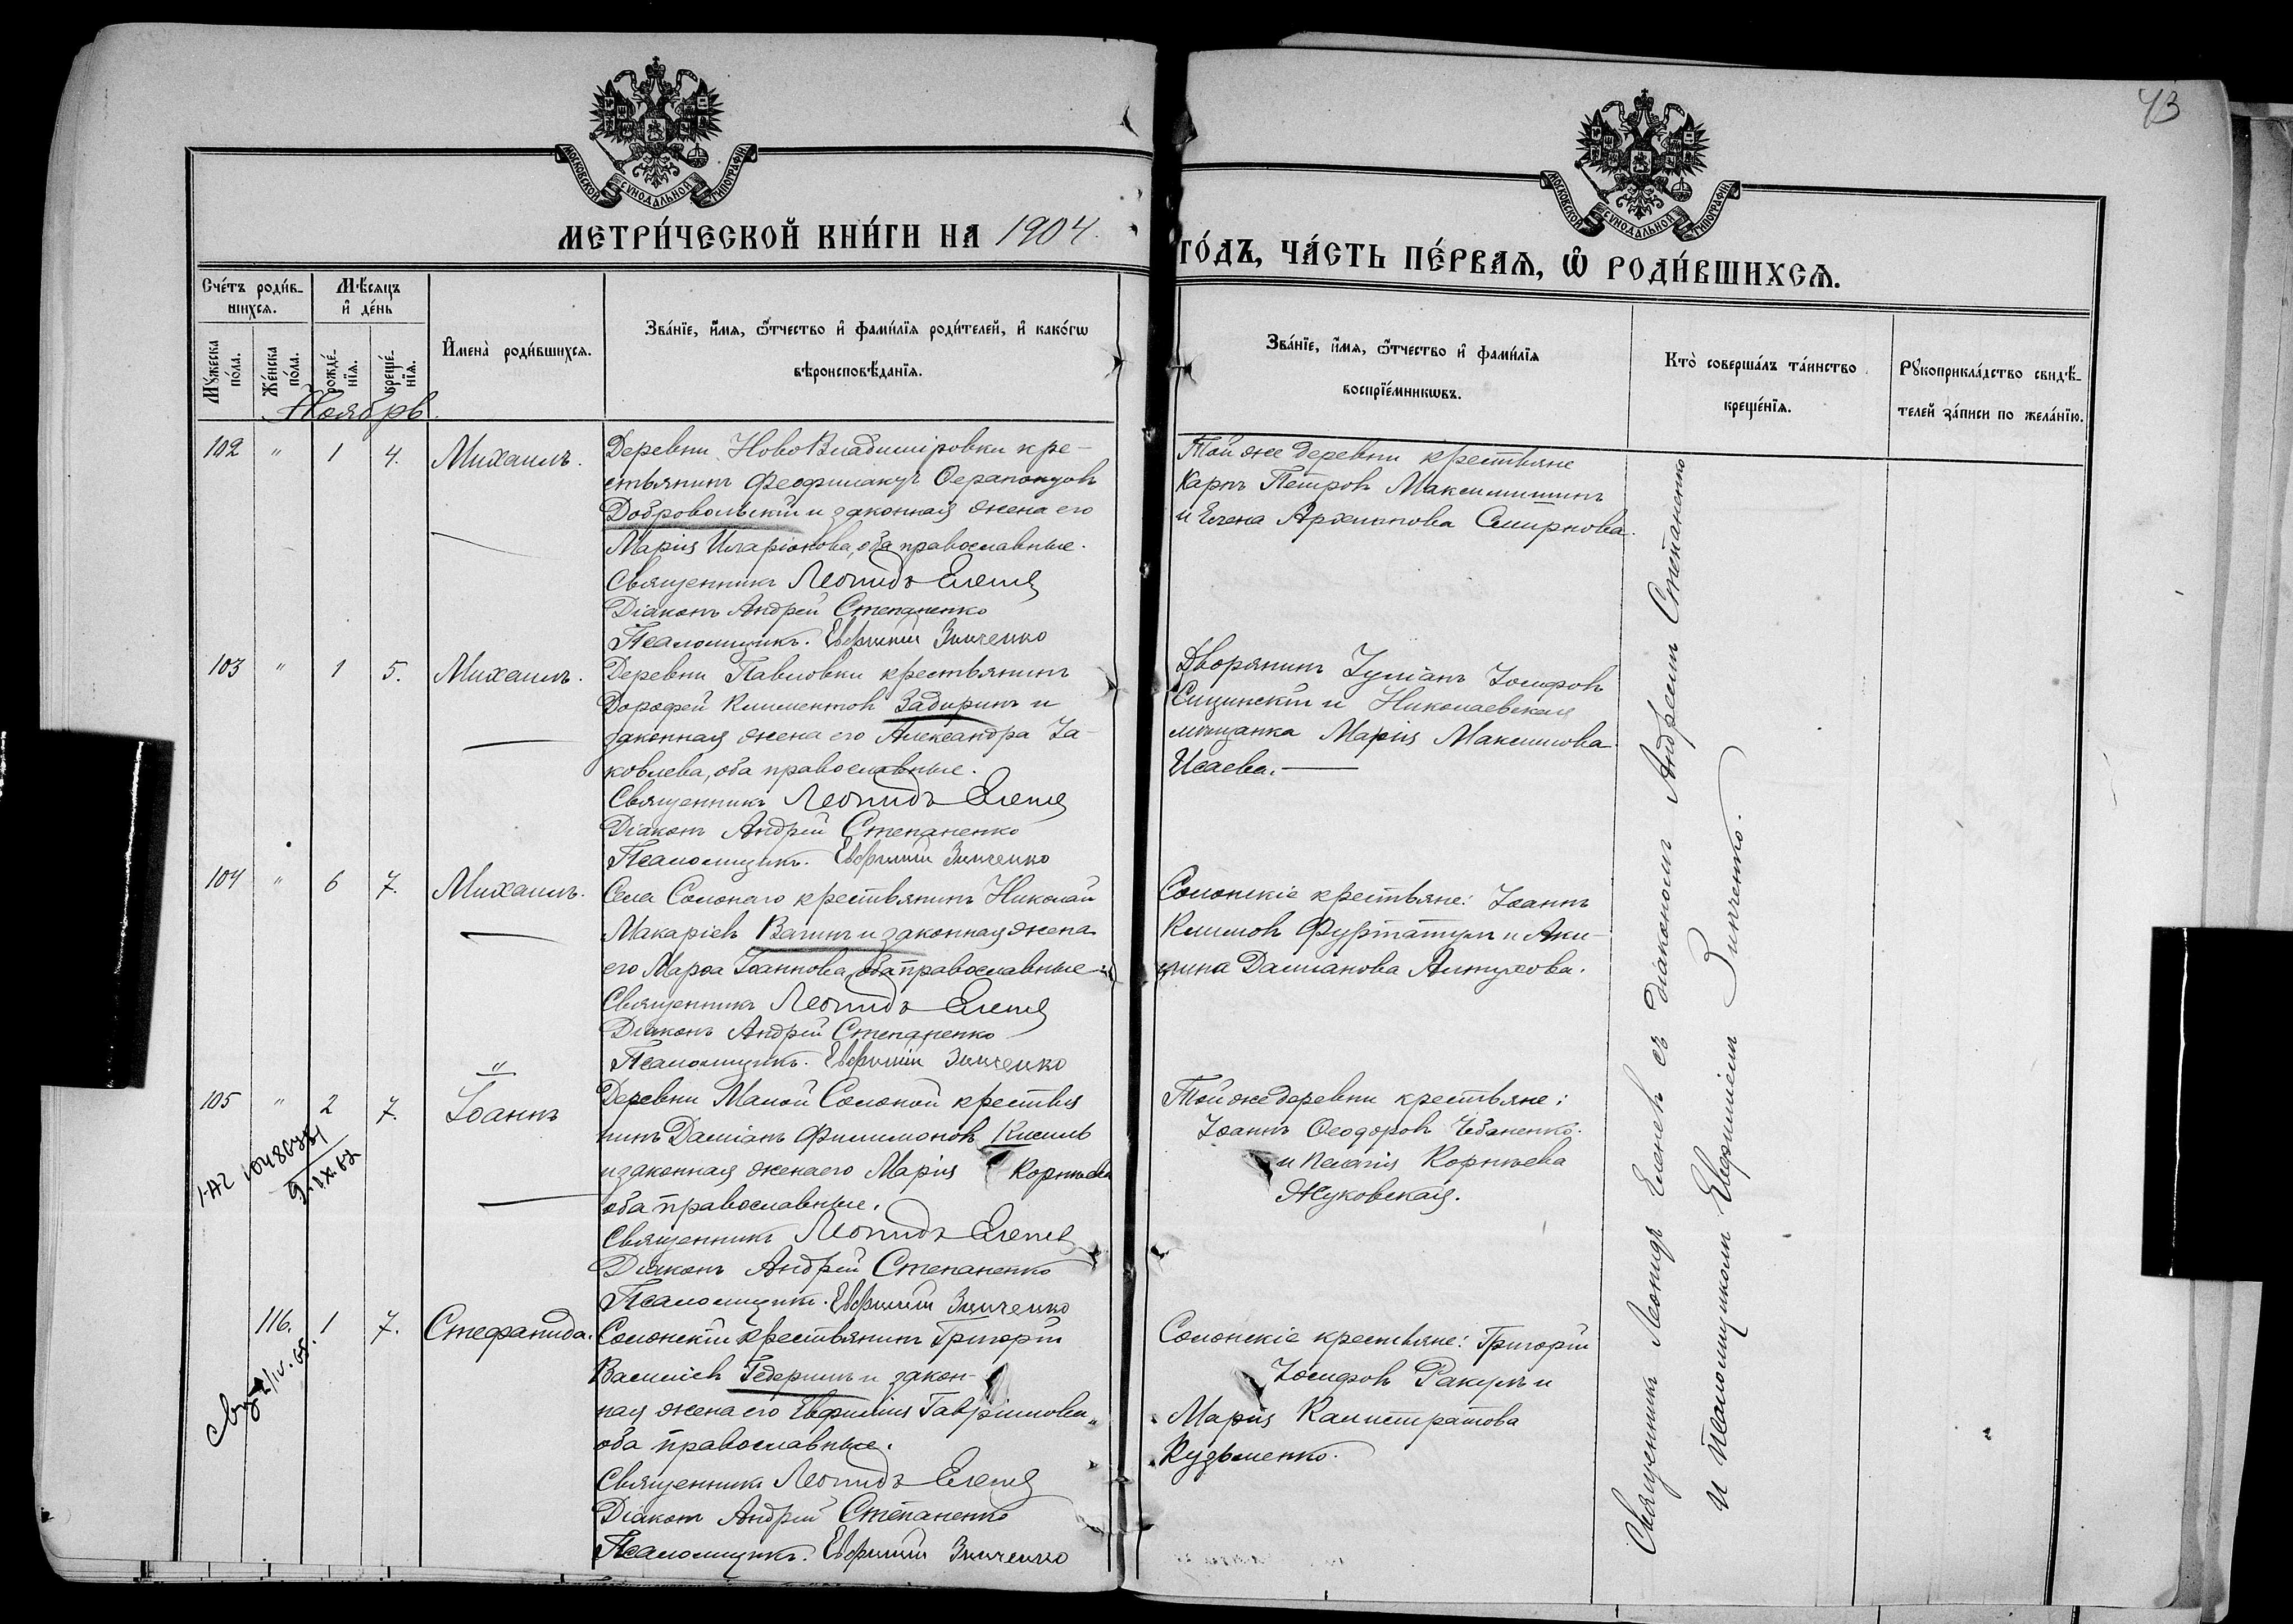 43
МОСКОВСКОЙ СѴНОДАЛЬНОЙ ТИПОГРАФІИ
МОСКОВСКОЙ СѴНОДАЛЬНОЙ ТИПОГРАФІИ
МЕТРИ́ЧЕСКОЙ КНИ́ГИ НА 1904.
ГО́ДЪ, ЧА́СТЬ ПЕ́РВАѦ, Ѽ РОДИ́ВШИХСѦ.
Сче́тъ роди́в-
шихсѧ.
Мѣ́сѧцъ
и҆ де́нь
Мꙋ́жеска
по́ла.
Же́нска
по́ла.
рожде́-
нїѧ.
креще́-
нїѧ.
И҆мена̀ роди́вшихсѧ.
Зва́нїе, и҆́мѧ, ѻ҆́тчество и҆ фами́лїѧ роди́телей, и҆ како́гѡ
вѣроисповѣ́данїѧ.
Зва́нїе, и҆́мѧ, ѻ҆́тчество и҆ фами́лїѧ
воспрїе́мникѡвъ.
Кто̀ соверша́лъ та́инство
креще́нїѧ.
Рꙋкоприкла́дство свидѣ́-
телей за́писи по жела́нїю.
Ноябрь.
102 " 1 4. Михаилъ.
Деревни НовоВладиміровки кре-
стьянинъ Феофилактъ Ѳерапонтовъ
Добровольскій и законная жена его
Марія Иларіонова, оба православные.
Священникъ Леонидъ Еленев
Діаконъ Андрей Степаненко
Псаломщикъ. Евфимій Зинченко
Той же деревни крестьяне
Карпъ Петровъ Максимишинъ
и Елена Архипова Смирнова.
103 " 1 5. Михаилъ.
Деревни Павловки крестьянинъ
Дорофей Климентовъ Задиринъ и
законная жена его Александра Іа-
ковлева, оба православные.
Священникъ Леонидъ Еленев
Діаконъ Андрей Степаненко
Псаломщикъ. Евфимій Зинченко
Дворянинъ Іуліанъ Іосифовъ
Сицинскій и Николаевская
мѣщанка Марія Максимова
Исаева.
104 " 6 7. Михаилъ.
Села Солонаго крестьянинъ Николай
Макаріевъ Вагинъ и законная жена
его Марѳа Іоаннова, оба православные.
Священникъ Леонидъ Еленев
Діаконъ Андрей Степаненко
Псаломщикъ. Евфимій Зинченко
Солонскіе крестьяне: Іоаннъ
Климовъ Фуртатулъ и Аки-
лина Даміанова Алтухова.
105 " 2 7. Іоаннъ
Деревни Малой Солоной крестья
нинъ Даміанъ Филимоновъ Кисиль
и законная жена его Марія Корнѣева
оба православные.
Священникъ Леонидъ Еленев
Діаконъ Андрей Степаненко
Псаломщикъ. Евфимій Зинченко
Той же деревни крестьяне:
Іоаннъ Ѳеодоровъ Чебаненко
и Пелагія Корнѣева
Жуковская.
116. 1 7. Стефанида.
Солонскій крестьянинъ Григорій
Василіевъ Гедеримъ и закон-
ная жена его Евфимія Гавріилова,
оба православные.
Священникъ Леонидъ Еленев
Діаконъ Андрей Степаненко
Псаломщикъ. Евфимій Зинченко
Солонскіе крестьяне: Григорій
Іосифовъ Ракулъ и
Марія Каллистратова
Кузьменко.
Священникъ Леонидъ Еленевъ съ діакономъ Андреемъ Степаненко
и псаломщикомъ Евфиміемъ Зинченко.